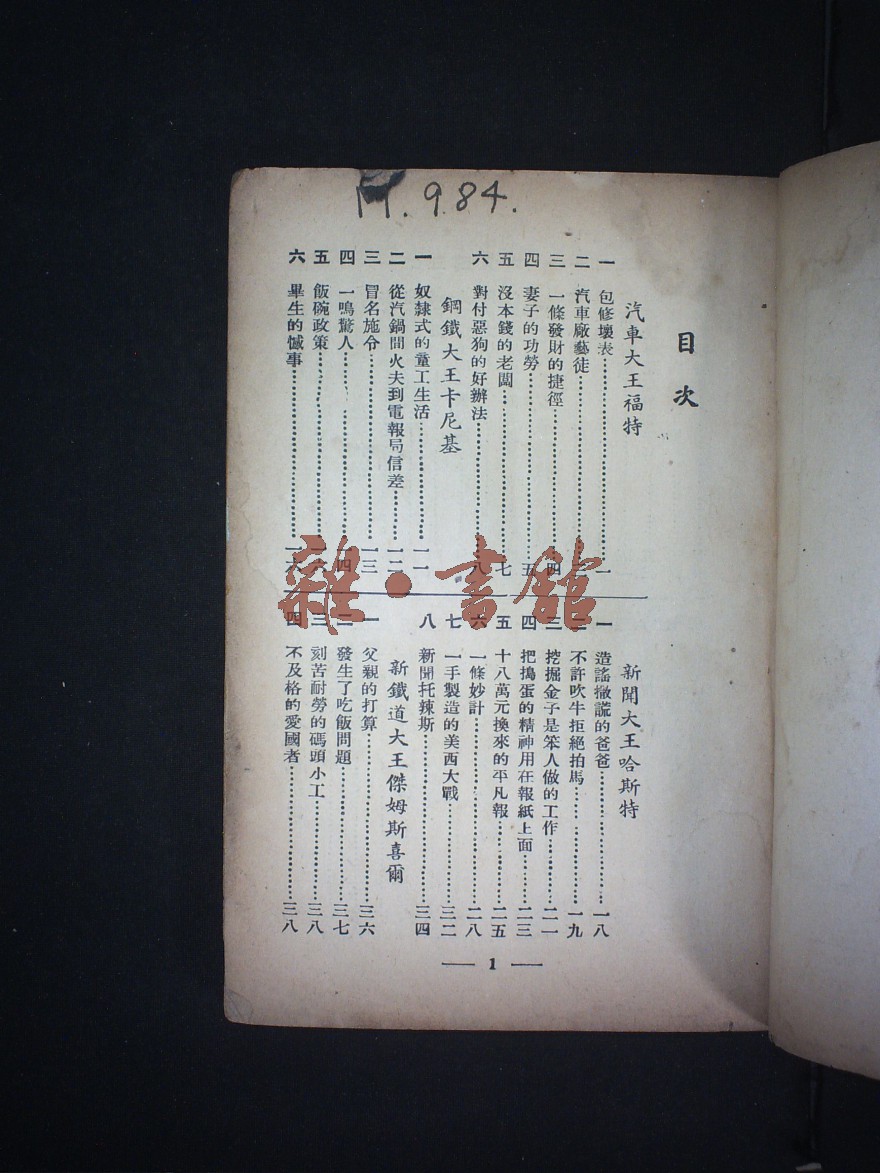 M.984.
目次
汽車大王福特
一 包修壞表……一
二 汽車廠藝徒……
三 一條發財的捷徑……四
四 妻子的功勞……五
五 沒本錢的老闆……七
六 對付惡狗的好辦法……八
鋼鐵大王卡尼基
一 奴隸式的童工生活……一一
二 從汽鍋間火夫到電報局信差……一二
三 冒名施令……一三
四 一鳴驚人……一四
五 飯碗政策……一六
六 畢生的憾事……一六
新聞大王哈斯特
一 造謠撤謊的爸爸……一八
二 不許吹牛拒絕拍馬……一九
三 挖掘金子是笨人做的工作……二一
四 把搗蛋的精神用在報紙上面……二三
五 十八萬元換來的平凡報……二五
六 一條妙計……二八
七 一手製造的美西大戰……三二
八 新聞托辣斯……三四
新鐵道大王傑姆斯喜爾
一 父親的打算……三六
二 發生了吃飯問題……三七
三 刻苦耐勞的碼頭小工……三八
四 不及格的愛國者……三八
— 1 —
雜·書館